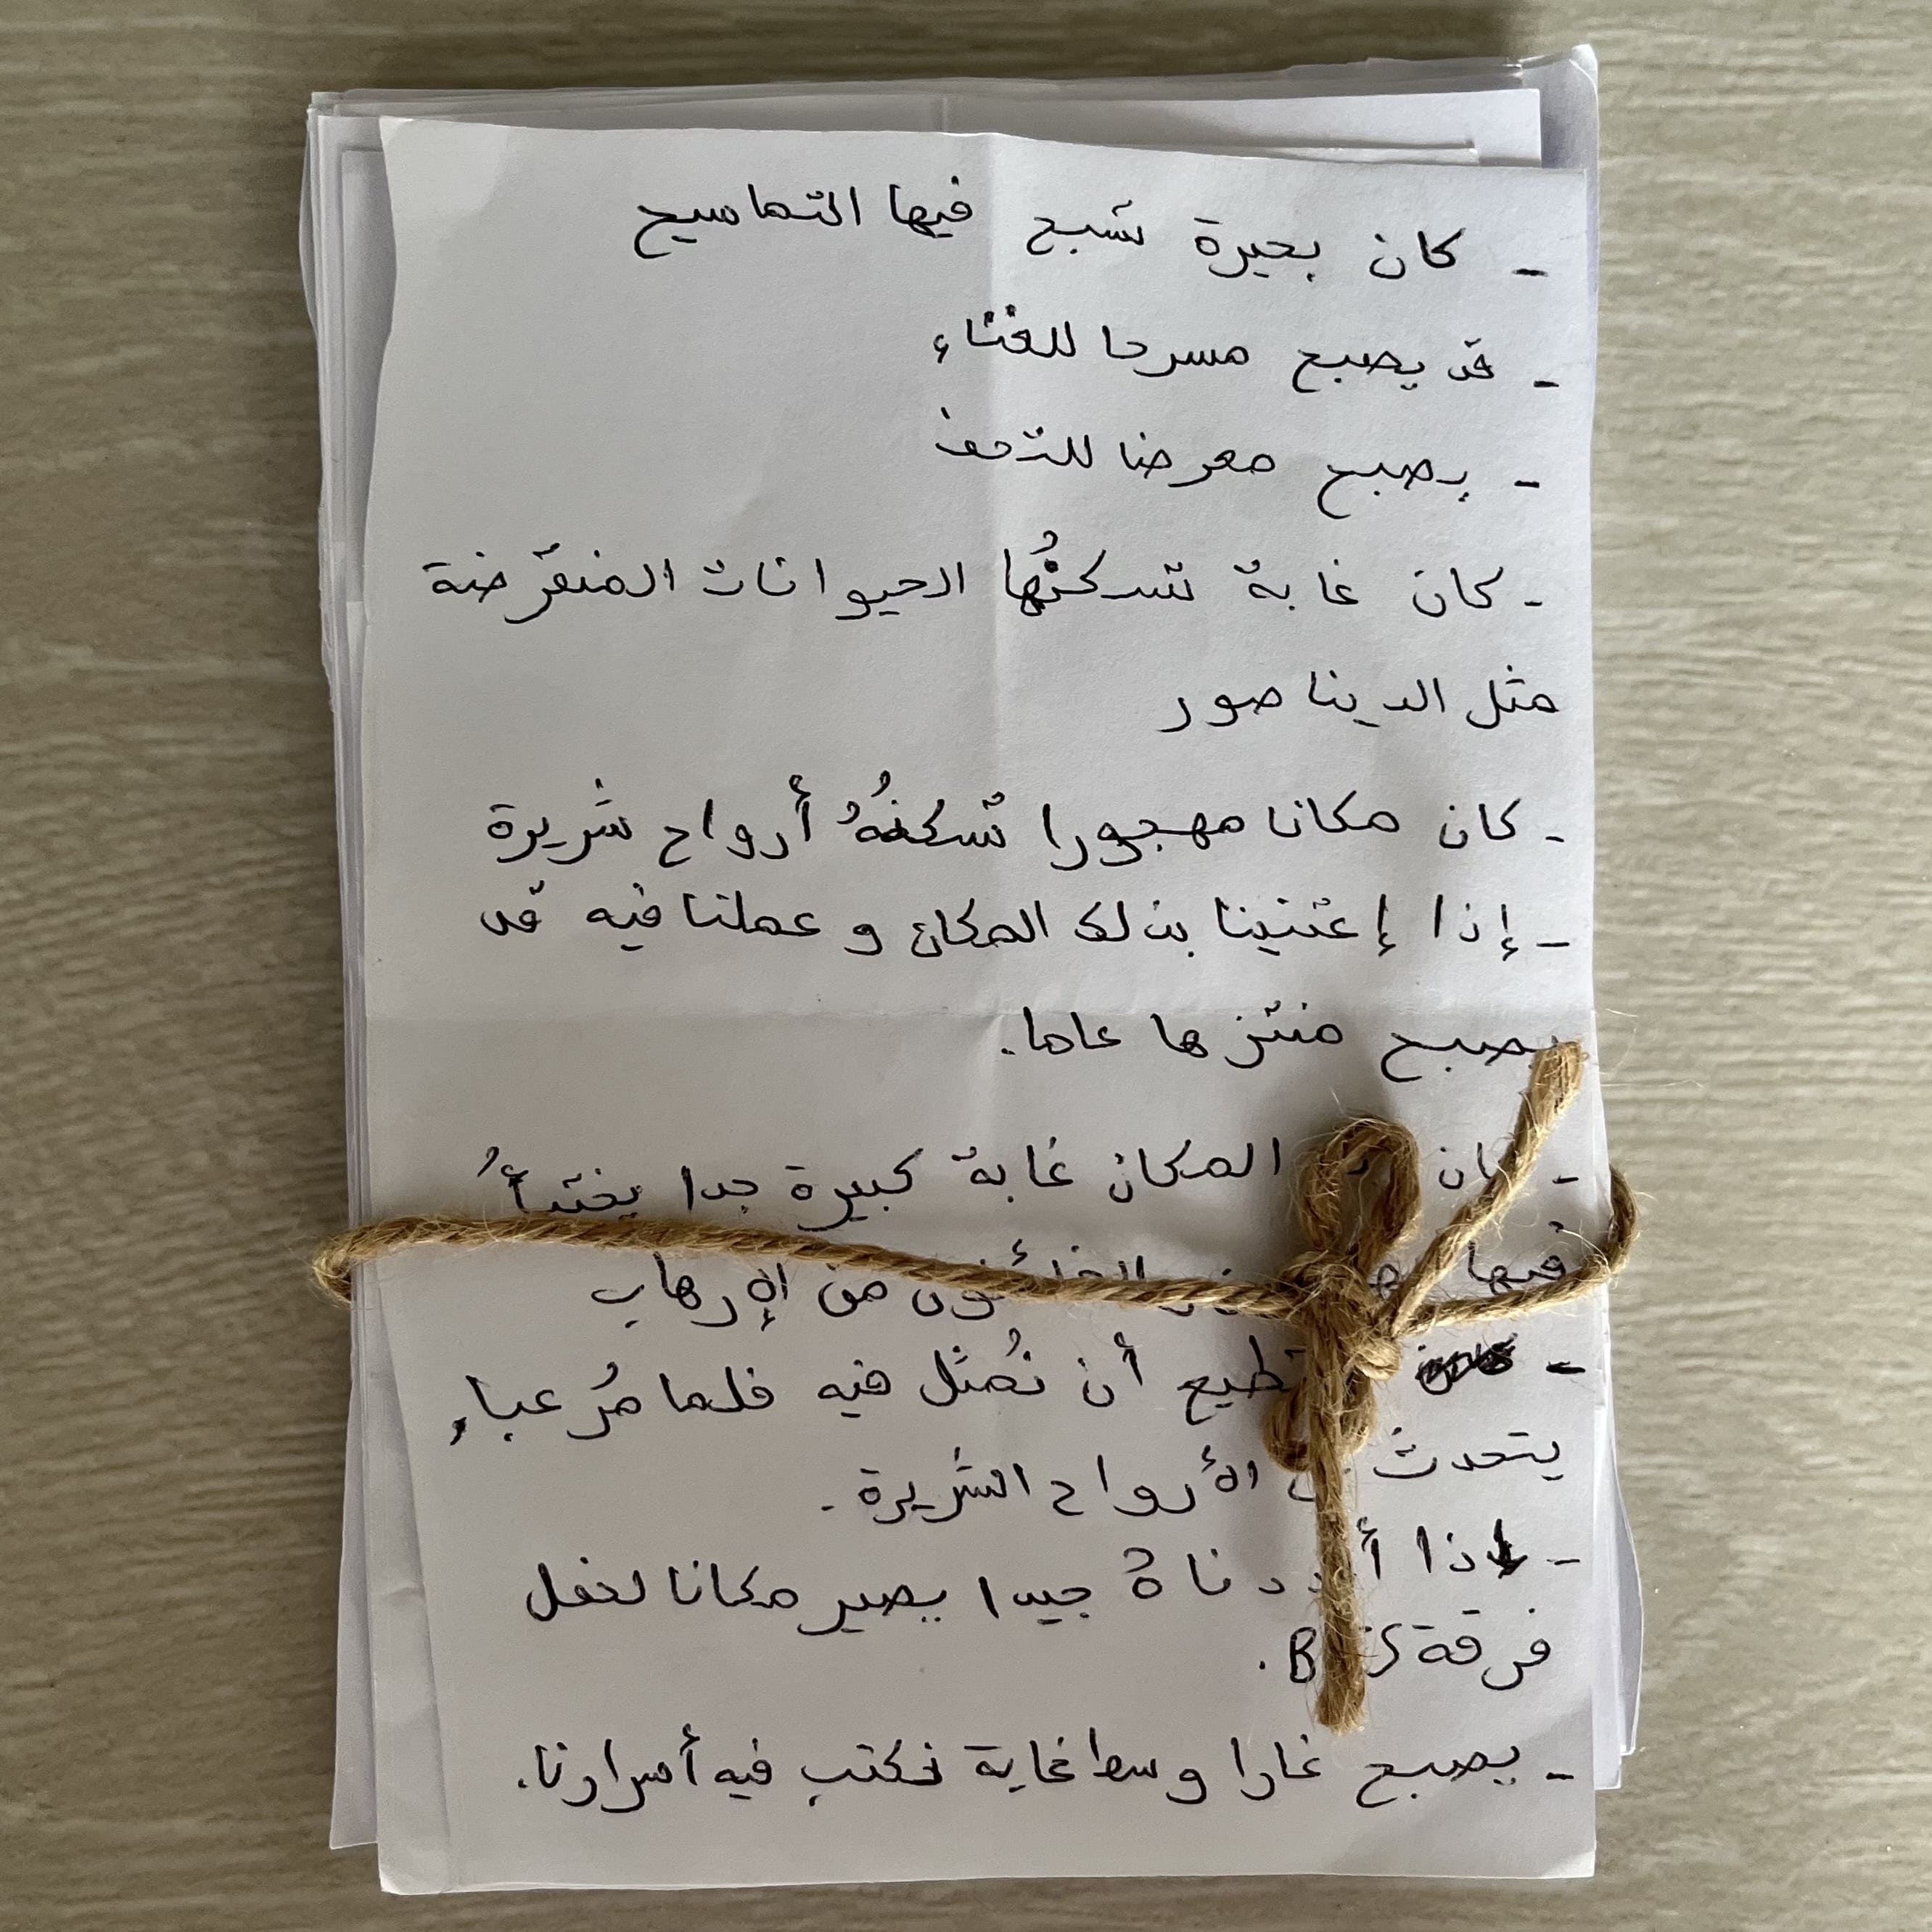 - كان بحيرة تسبح فيها التماسيح
- قد يصبح مسرحا للغناء
- يصبح معرضا للتحف
- كان غابة تسكنُها الحيوانات المنقرضة
مثل الديناصور
- كان مكانا مهجورا تسكنهُ أرواح شريرة
- إذا إعتنينا بذلك المكان و عملنا فيه قد
يصبح منتزها عاما.
- كان المكان غابة كبيرة جدا يختبأُ
فيها من الإرهاب
- أن نُمثل فيه فلما مُرعبا,
يتحدث الأرواح الشريرة.
- إذا جيدا يصير مكانا لحفل
فرقة
- يصبح غارا وسط غابة نكتب فيه أسرارنا.